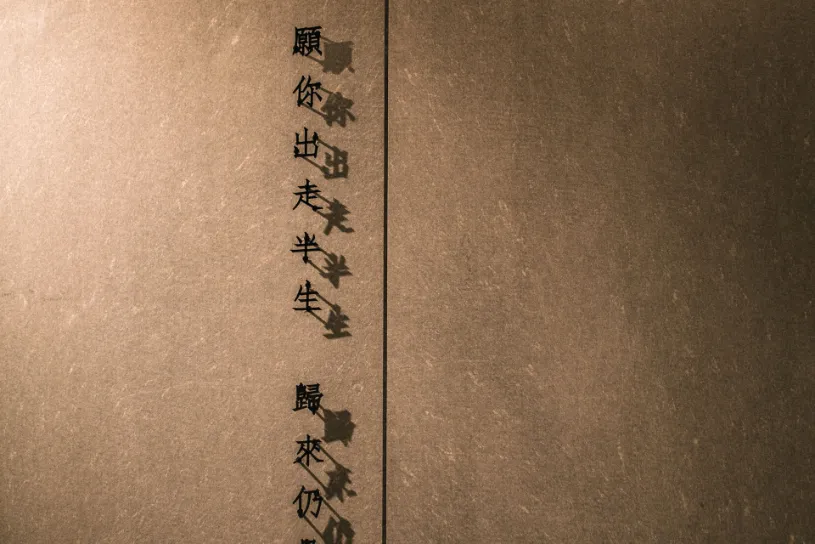 願你出走半生
歸來仍